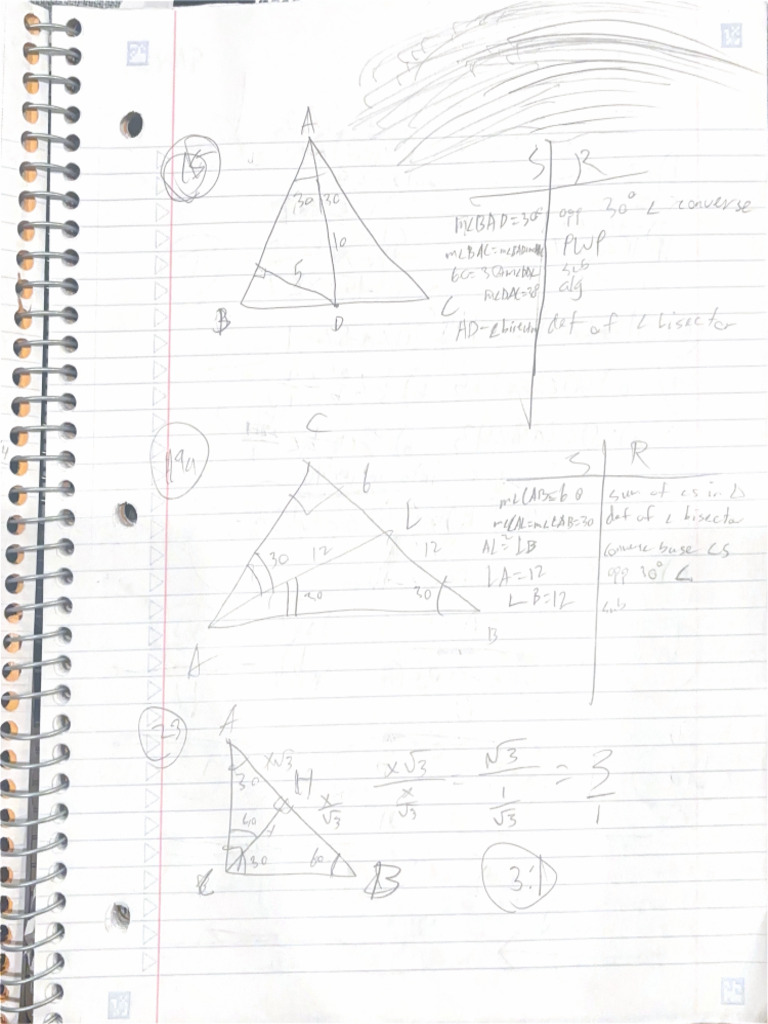 15
A
30 30
10
5
B D C
S R
m∠BAD=30° opp 30° ∠ converse
PWP
sub
alg
AD-∠bisector def of ∠ bisector
19a
C
6
L
30 12 12
30 30
A B
S R
m∠CAB=60 sum of ∠s in Δ
m∠CAL=m∠LAB=30 def of ∠ bisector
AL≅LB converse base ∠s
LA=12 opp 30° ∠
LB=12 sub
23
A
x√3
30 H
x/√3
x
30 60
B
x√3 / (x/√3) = √3 / (1/√3) = 3/1
3:1